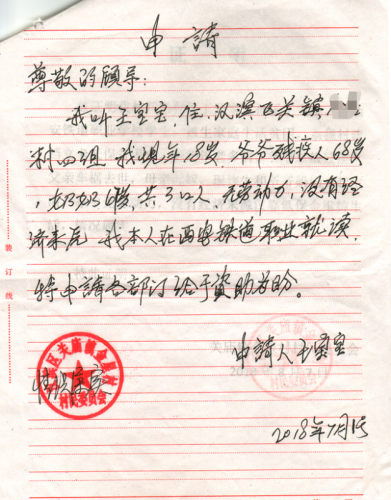 申請
尊敬的领导:
我叫王宝宝,住汉滨区关镇
村四组 我现年18岁 爷爷残疾人68岁
,奶奶6歲,共3口人 无劳动力,没有经
济来元 我本人在西安铁道职业就读,
特申請各部门给于资助为盼。
装订线
情况属实
区关庙镇
村民委员会
申請人王宝宝
2018年7月1号